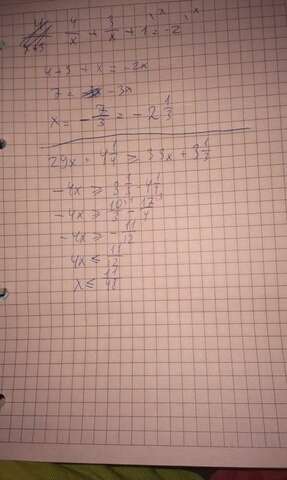 4/x + 3/x + 1 = -2
4 + 3 + x = -2x
7 = -3x
x = - 7/3 = - 2 1/3
29x + 4 1/4 ≥ 33x + 3 1/3
-4x ≥ 3 1/3 - 4 1/4
-4x ≥ 10/3 - 17/4
-4x ≥ - 11/12
4x ≤ 11/12
x ≤ 11/48